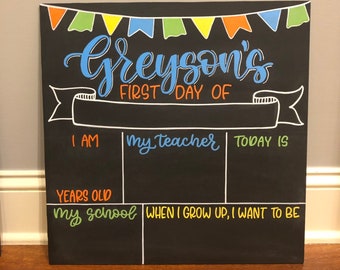 Greyson's
FIRST DAY OF
I AM
my teacher
TODAY IS
YEARS OLD
my school
WHEN I GROW UP, I WANT TO BE